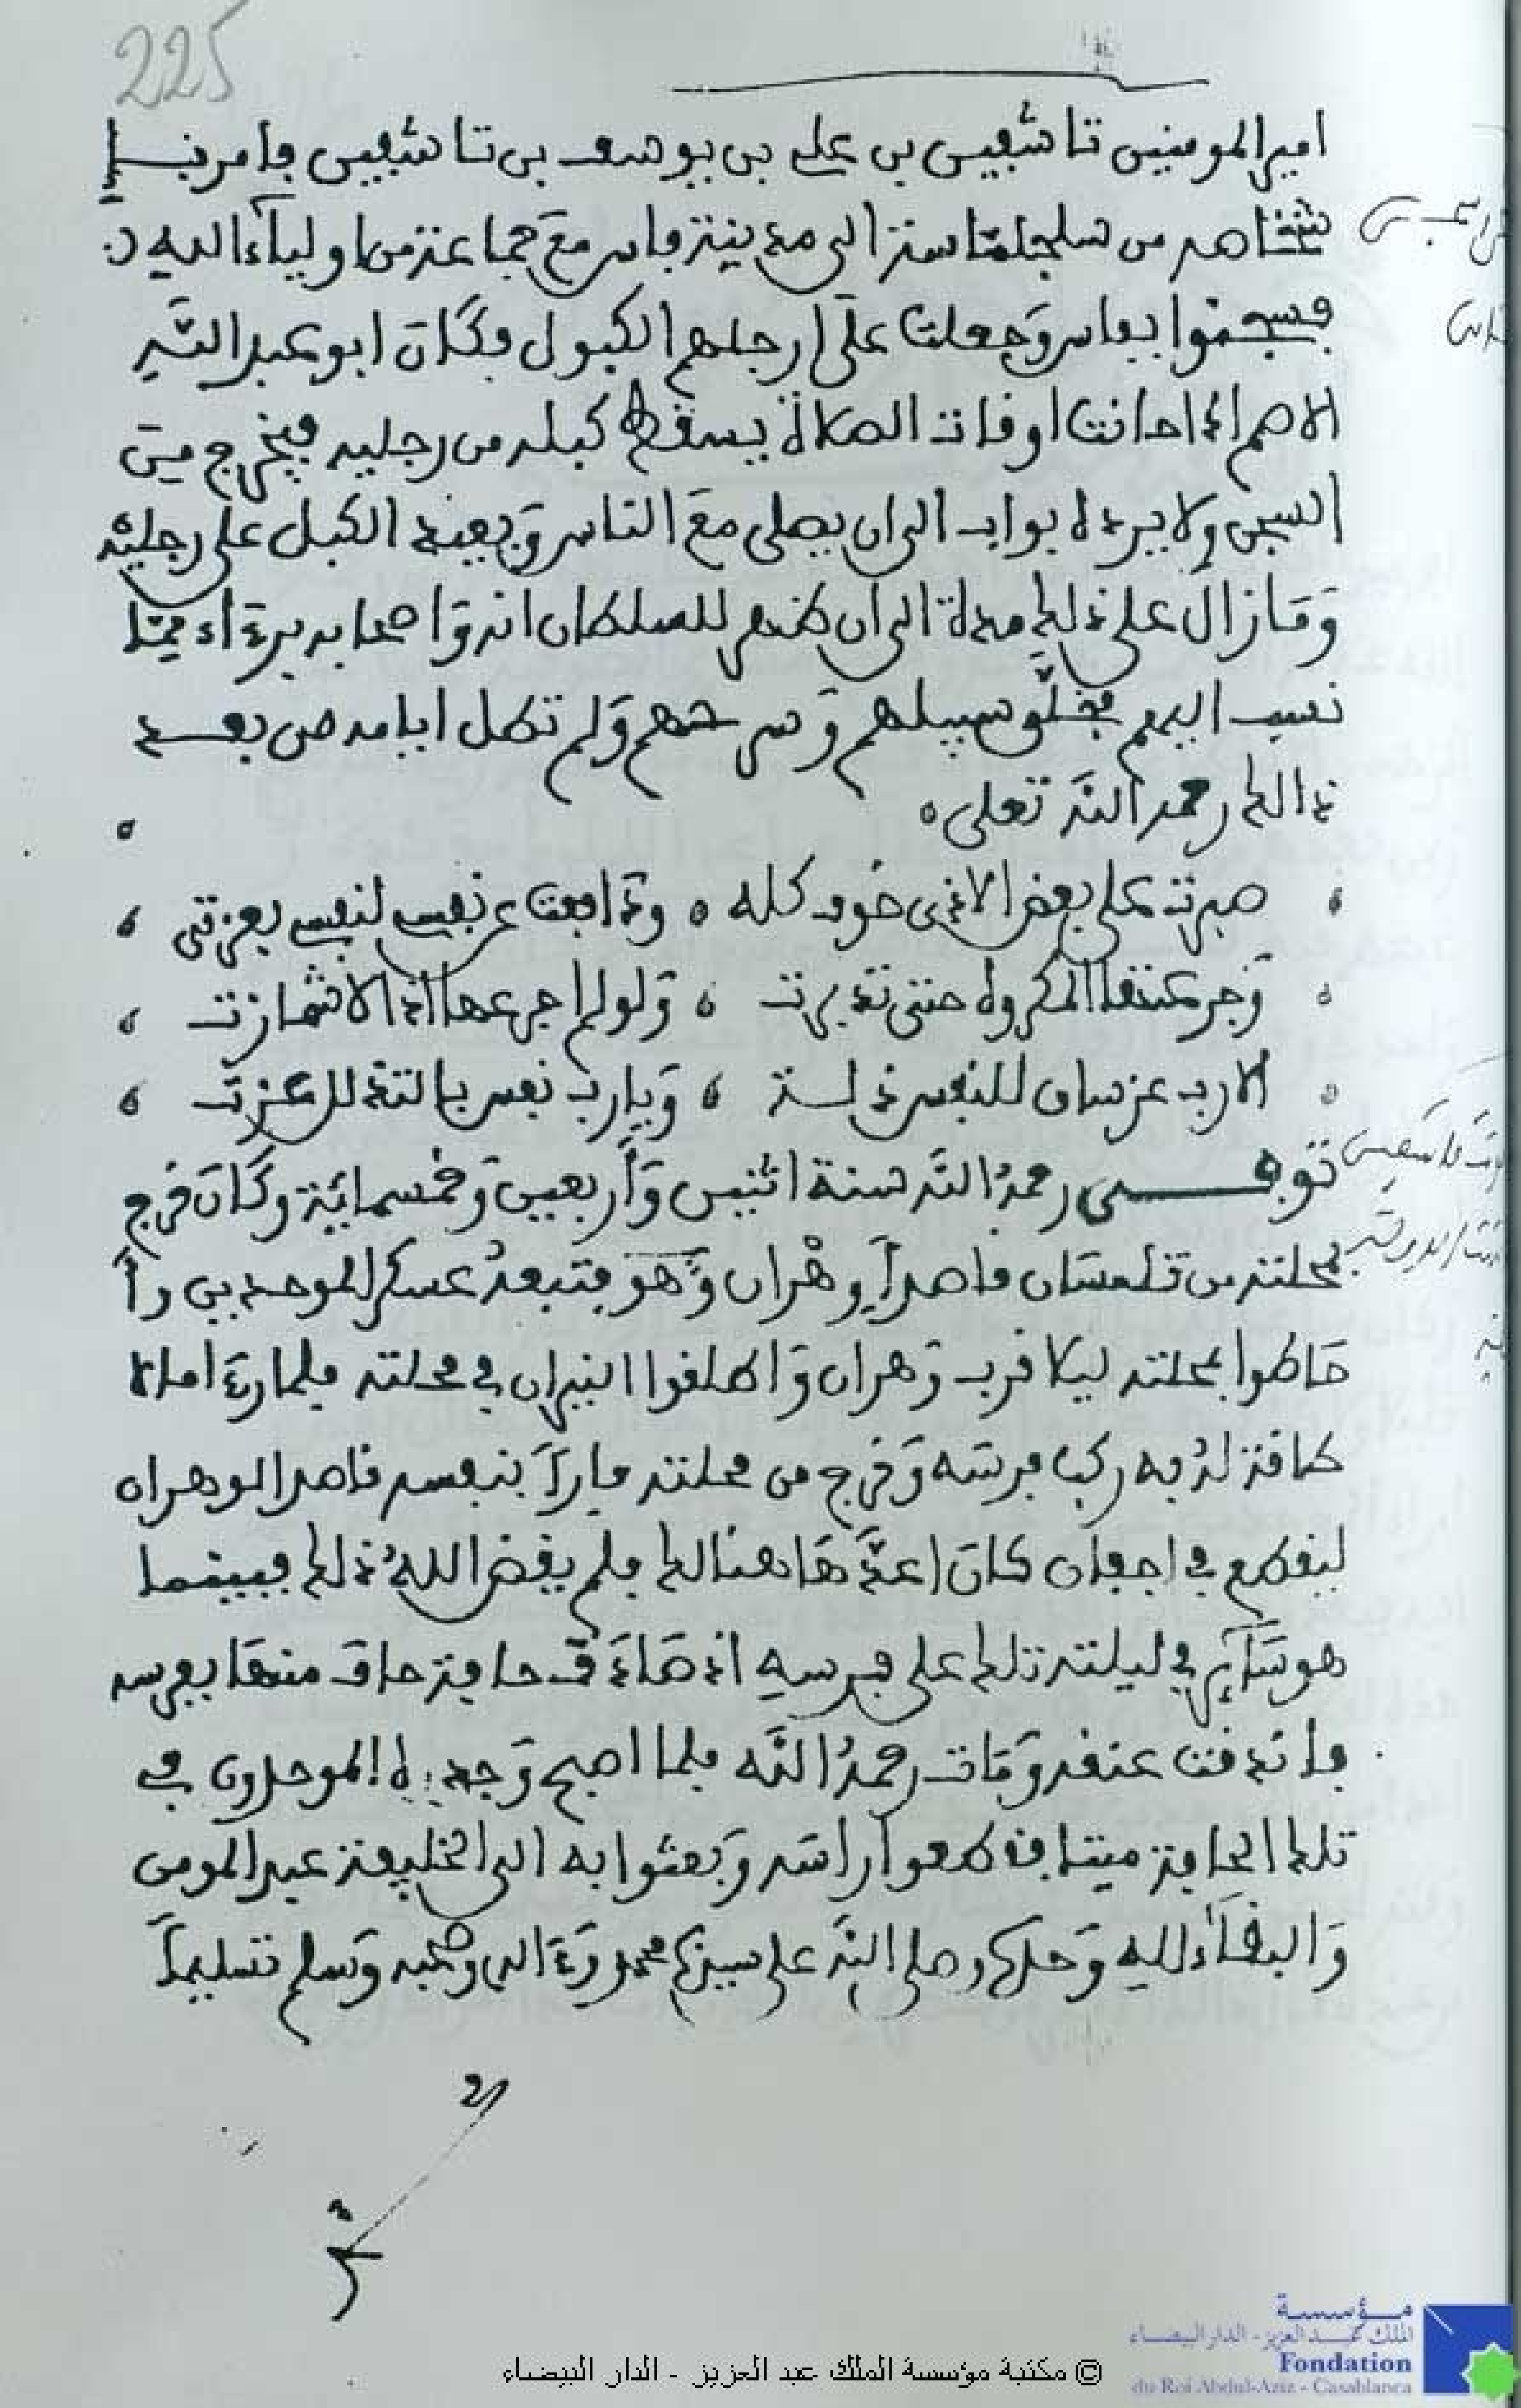 225
امير المومنين تاشفين بن علي بن يوسف بن تاشفين وامر با
شخاصهم من سلجلماسة الى مدينة فاس مع جماعة من اولياء الله
فسجنوا بفاس وجعلت على ارجلهم الكبول وكان ابو عبد الله
الاصم اذا حانت اوقات الصلاة يسقط كبله من رجليه فيخرج من
السجن ولا يرده بواب الى ان يصلي مع الناس ويعيد الكبل على رجليه
وما زال على ذلك مدة الى ان ظهر للسلطان انه واصحابه برءاء مما
نسب اليهم فخلى سبيلهم وسرحهم ولم تطل ايامه من بعد
ذالك رحمه الله تعلى
صبرت على بعض الاذى خوف كله ودافعت عن نفسي لنفسي بعزتي
وجرعتها المكروه حتى تدبرت ولو لم اجرعها اذا لاشمازت
الا رب عز ساق للنفس ذلة ويا رب نفس بالتذلل عزت
توفى رحمه الله سنة اثنين واربعين وخمسمائة وكان خرج
بمحلته من تلمسان قاصدا وهران وهو يتبعه عسكر الموحدين وا
حاطوا بمحلته ليلا قرب وهران واطلقوا النيران في محلته فلما رءا ما لا
طاقة له به ركب فرسه وخرج من محلته فارا بنفسه قاصدا لوهران
ليقطع في اجفان كان اعدها هنالك فلم يقض الله ذلك فبينما
هو سائر في ليلته تلك على فرسه اذ صادف حافة حاف منها بفرسه
فاندقت عنقه ومات رحمه الله فلما اصبح وجده الموحدون في
تلك الحافة ميتا فقطعوا راسه وبعثوا به الى الخليفة عبد المومن
والبقاء لله وحده وصلى الله على سيدنا محمد وءاله وصحبه وسلم تسليما
مؤسسة
الملك عبد العزيز - الدار البيضاء
Fondation
du Roi Abdul-Aziz - Casablanca
© مكتبة مؤسسة الملك عبد العزيز - الدار البيضاء